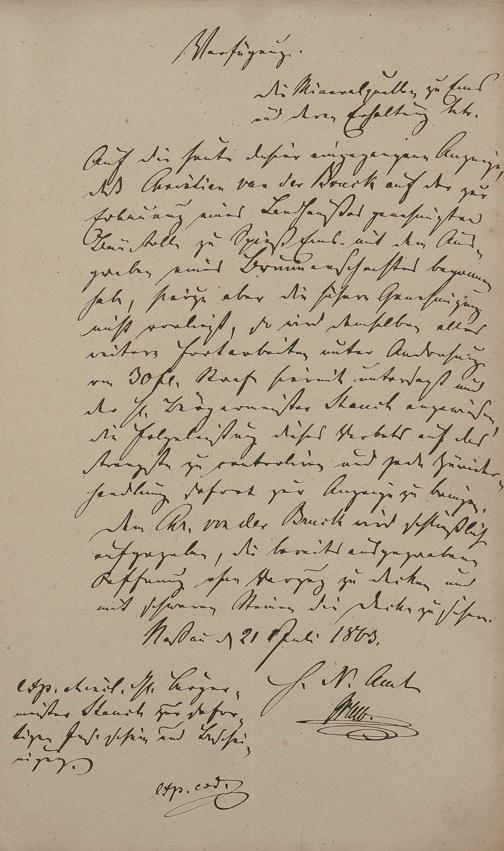 Verfügung.
die Mineralquellen zu Ems
und deren Erhaltung betr.
Auf die heute dahier eingegangene Anzeige,
daß Christian von der Bruck auf der zur
Erbauung eines Landhauses genehmigten
Baustelle zu Spieß-Ems mit dem Aus-
graben eines Brunnenschachtes begonnen
habe, hierzu aber die höhere Genehmigung
nicht vorliegt, so wird demselben alles
weitere Fortarbeiten unter Androhung
von 30 fl. Strafe hiermit untersagt und
der H. Bürgermeister Stauch angewiesen,
die Folgeleistung dieses Verbots auf das
strengste zu controliren und jede Zuwider-
handlung sofort zur Anzeige zu bringen.
Dem Chr. von der Bruck wird schließlich
aufgegeben, die bereits ausgegrabene
Oeffnung ohne Verzug zu decken und
mit schweren Steinen die Decke zu sichern.
Nassau d 21 Juli 1863.
H. N. Amt
exp. H. Bürger-
meister Stauch zur sofor-
tigen und Beschei-
nigung.
exp. eod.